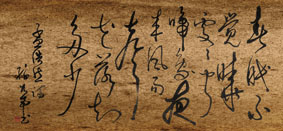 春眠不
觉晓
处处闻
啼鸟夜
来风雨
声花
落知
多少
孟浩然诗